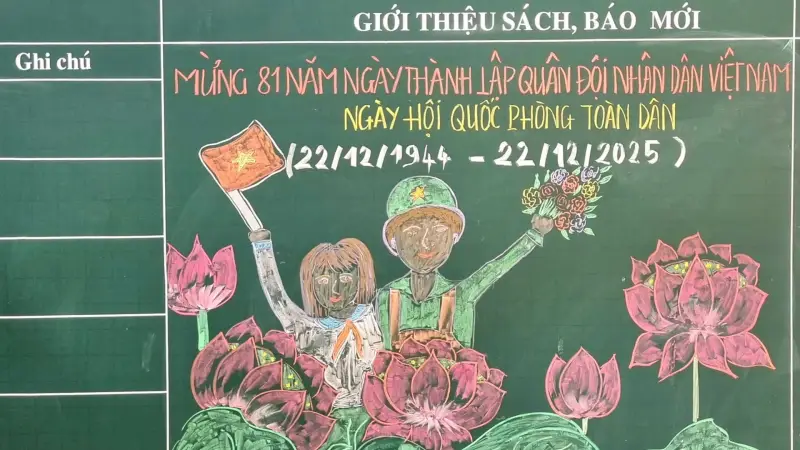 GIỚI THIỆU SÁCH, BÁO MỚI
Ghi chú
MỪNG 81 NĂM NGÀY THÀNH LẬP QUÂN ĐỘI NHÂN DÂN VIỆT NAM
NGÀY HỘI QUỐC PHÒNG TOÀN DÂN
(22/12/1944 - 22/12/2025)